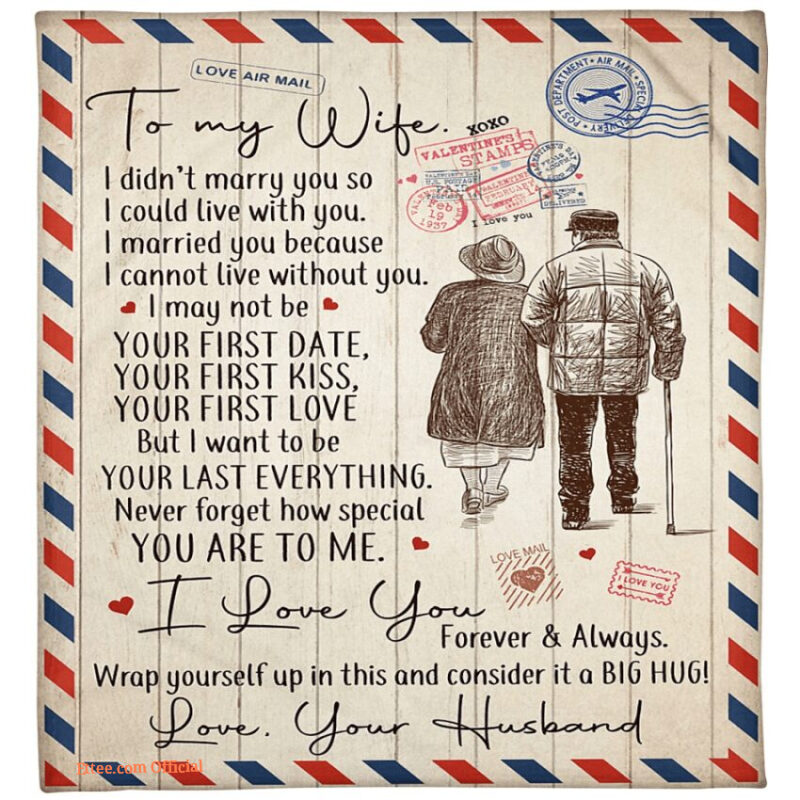 LOVE AIR MAIL
POST DEPARTMENT • AIR MAIL • SPECIAL DELIVERY •
To my Wife.
XOXO
VALENTINE'S
STAMPS
VALENTINE'S DAY
U.S. POSTAGE
Feb
19
1937
VALENTINE
FEBRUARY
14
DELIVERED
I love you
I didn't marry you so
I could live with you.
I married you because
I cannot live without you.
I may not be
YOUR FIRST DATE,
YOUR FIRST KISS,
YOUR FIRST LOVE
But I want to be
YOUR LAST EVERYTHING.
Never forget how special
YOU ARE TO ME.
LOVE MAIL
I LOVE YOU
I Love You
Forever & Always.
Wrap yourself up in this and consider it a BIG HUG!
Love, Your Husband
Official